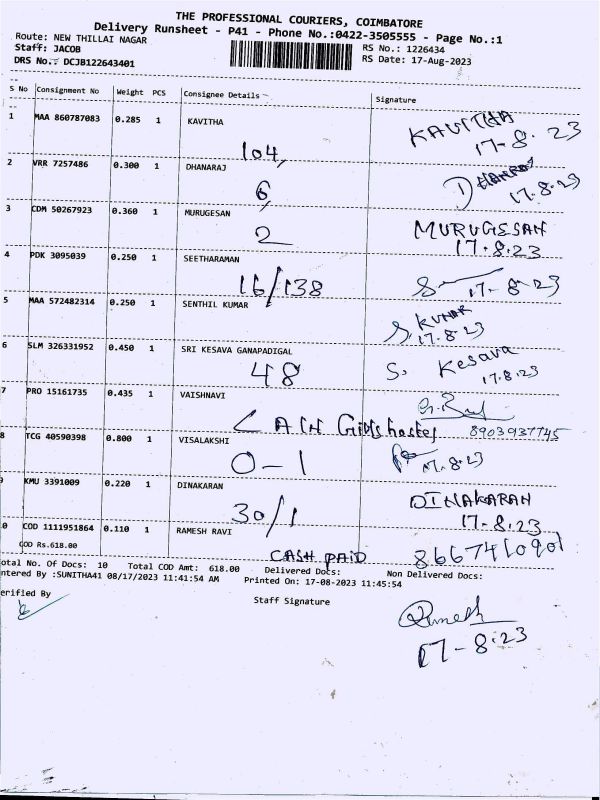 THE PROFESSIONAL COURIERS, COIMBATORE
Delivery Runsheet - P41 - Phone No.:0422-3505555 - Page No.:1
Route: NEW THILLAI NAGAR
Staff: JACOB
DRS No.: DCJB122643401
RS No.: 1226434
RS Date: 17-Aug-2023
S No Consignment No Weight PCS Consignee Details Signature
1 MAA 860787083 0.285 1 KAVITHA KAVITHA
104, 17-8.23
2 VRR 7257486 0.300 1 DHANARAJ DHANRAJ
6, 17.8.23
3 CDM 50267923 0.360 1 MURUGESAN MURUGESAN
2 17.8.23
4 PDK 3095039 0.250 1 SEETHARAMAN
16/138 17-8-23
5 MAA 572482314 0.250 1 SENTHIL KUMAR S. KUMAR
17.8.23
6 SLM 326331952 0.450 1 SRI KESAVA GANAPADIGAL S. Kesava
48 17.8.23
7 PRO 15161735 0.435 1 VAISHNAVI
Girls hostel 8903937745
8 TCG 40590398 0.800 1 VISALAKSHI
0-1 17.8.23
KMU 3391009 0.220 1 DINAKARAN DINAKARAN
30/1 17-8.23
0 COD 1111951864 0.110 1 RAMESH RAVI
COD Rs.618.00 CASH PAID 8667410901
otal No. Of Docs: 10 Total COD Amt: 618.00 Delivered Docs: Non Delivered Docs:
ntered By :SUNITHA41 08/17/2023 11:41:54 AM Printed On: 17-08-2023 11:45:54
erified By Staff Signature
Ramesh
17-8.23